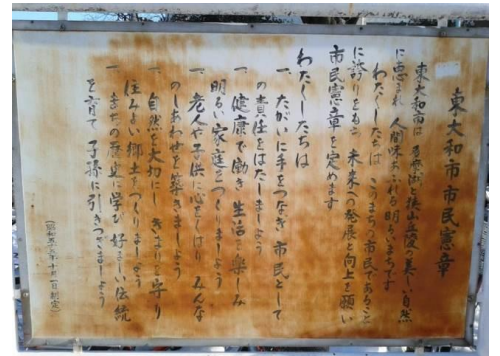 東大和市市民憲章
東大和市は 多摩湖と狭山丘陵の美しい自然
に恵まれ 人間味あふれる明るいまちです
わたくしたちは このまちの市民であること
に誇りをもち 未来への発展と向上を願い
市民憲章を定めます
わたくしたちは
一、たがいに手をつなぎ 市民として
の責任をはたしましよう
一、健康で働き 生活を楽しみ
明るい家庭をつくりましよう
一、老人や子供に心をくばり みんな
のしあわせを築きましよう
一、自然を大切にし きまりを守り
住みよい郷土をつくりましよう
一、まちの歴史に学び 好ましい伝統
を育て 子孫に引きつぎましよう